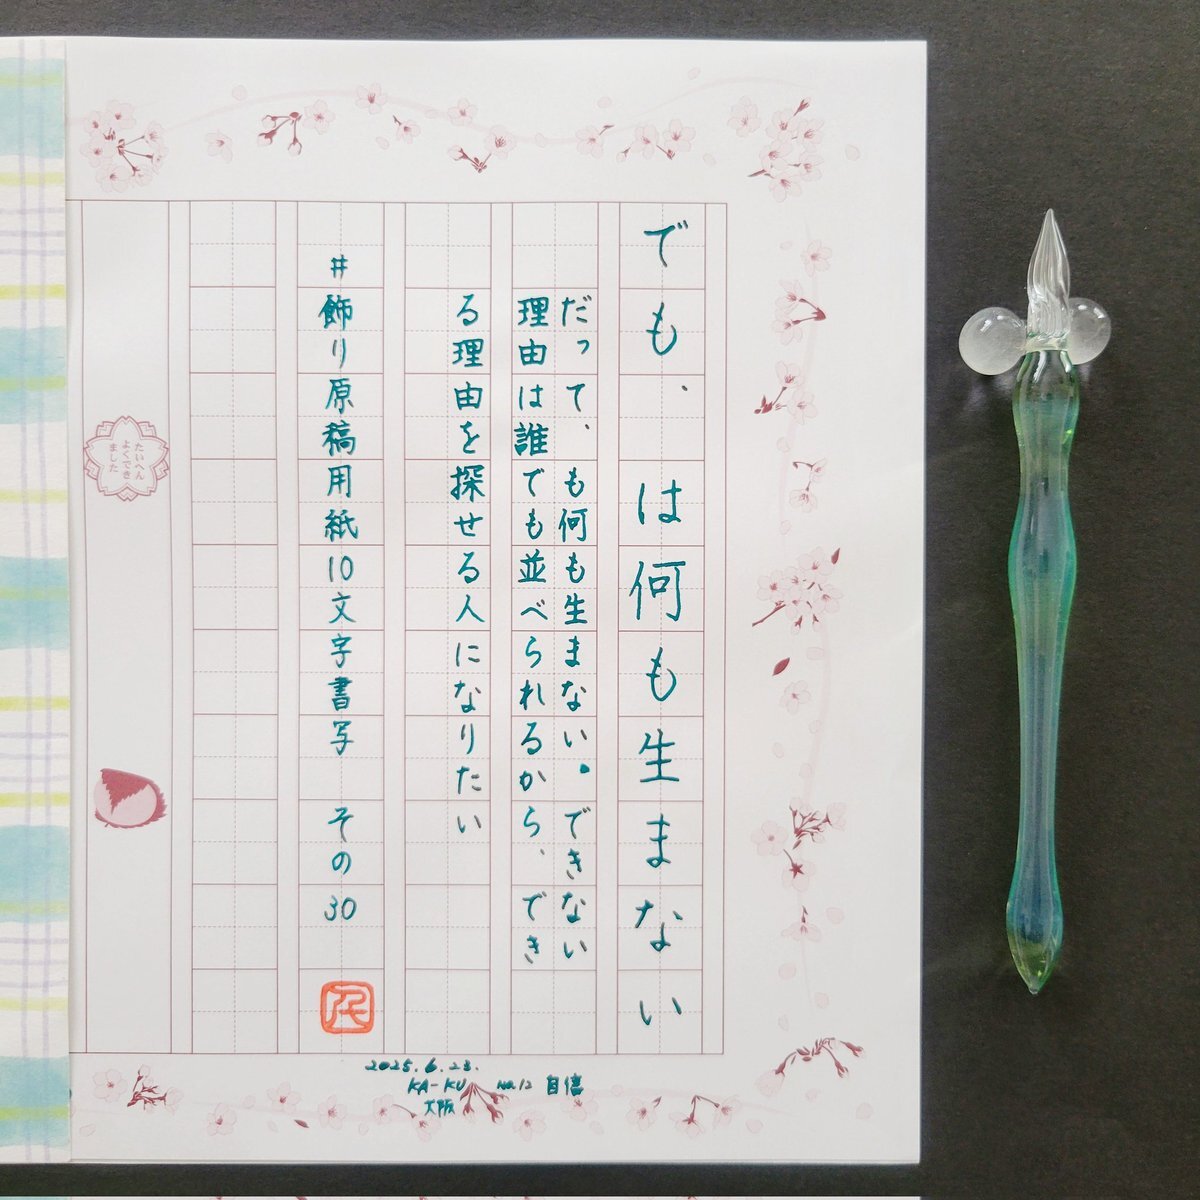 でも、は何も生まない
だって、も何も生まない。できない
理由は誰でも並べられるから、でき
る理由を探せる人になりたい
#飾り原稿用紙10文字書写 その30
たいへん
よくでき
ました
2025.6.23.
KA-KU No.12 自信
大阪